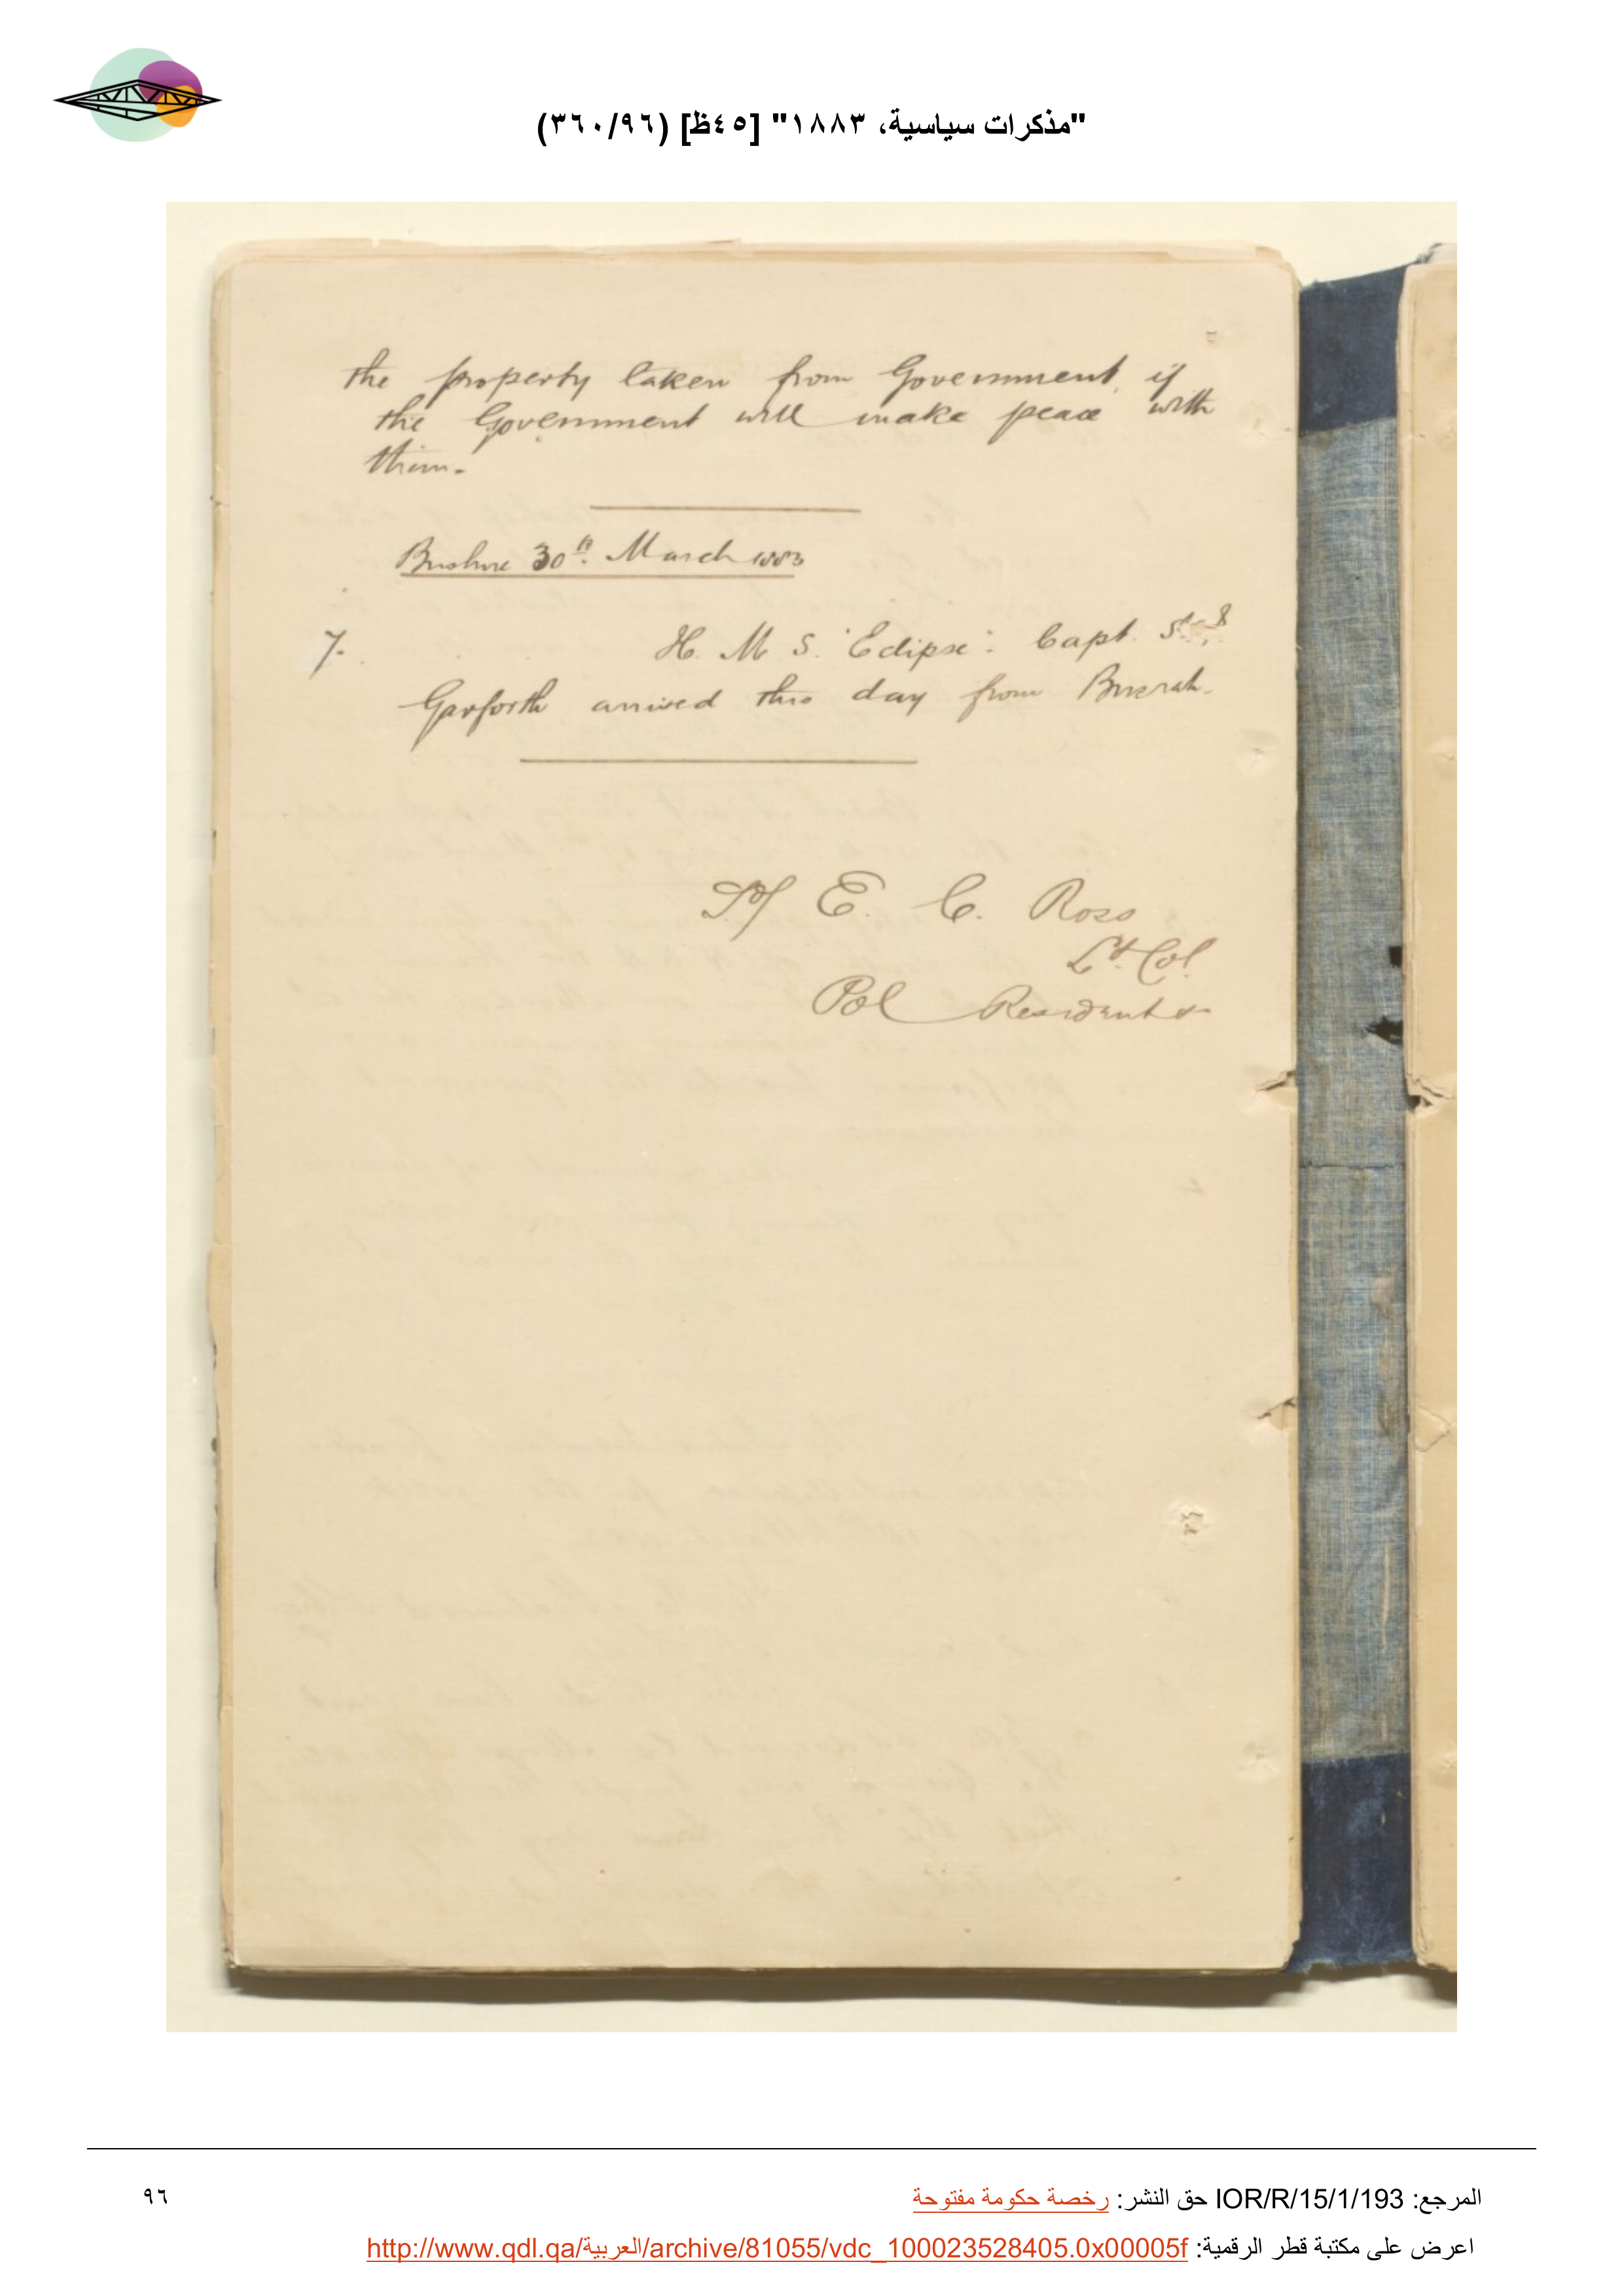 "مذكرات سياسية، ١٨٨٣" [٤٥ظ] (٣٦٠/٩٦)
the property taken from Government if
the Government will make peace with
them.
Bushire 30th March 1883
7.
H. M S. "Eclipse". Capt.
Garforth arrived this day from Busrah.
Sd/ E. C. Ross
Lt. Col.
Pol Resident &
المرجع: IOR/R/15/1/193 حق النشر: رخصة حكومة مفتوحة
٩٦
اعرض على مكتبة قطر الرقمية: http://www.qdl.qa/العربية/archive/81055/vdc_100023528405.0x00005f